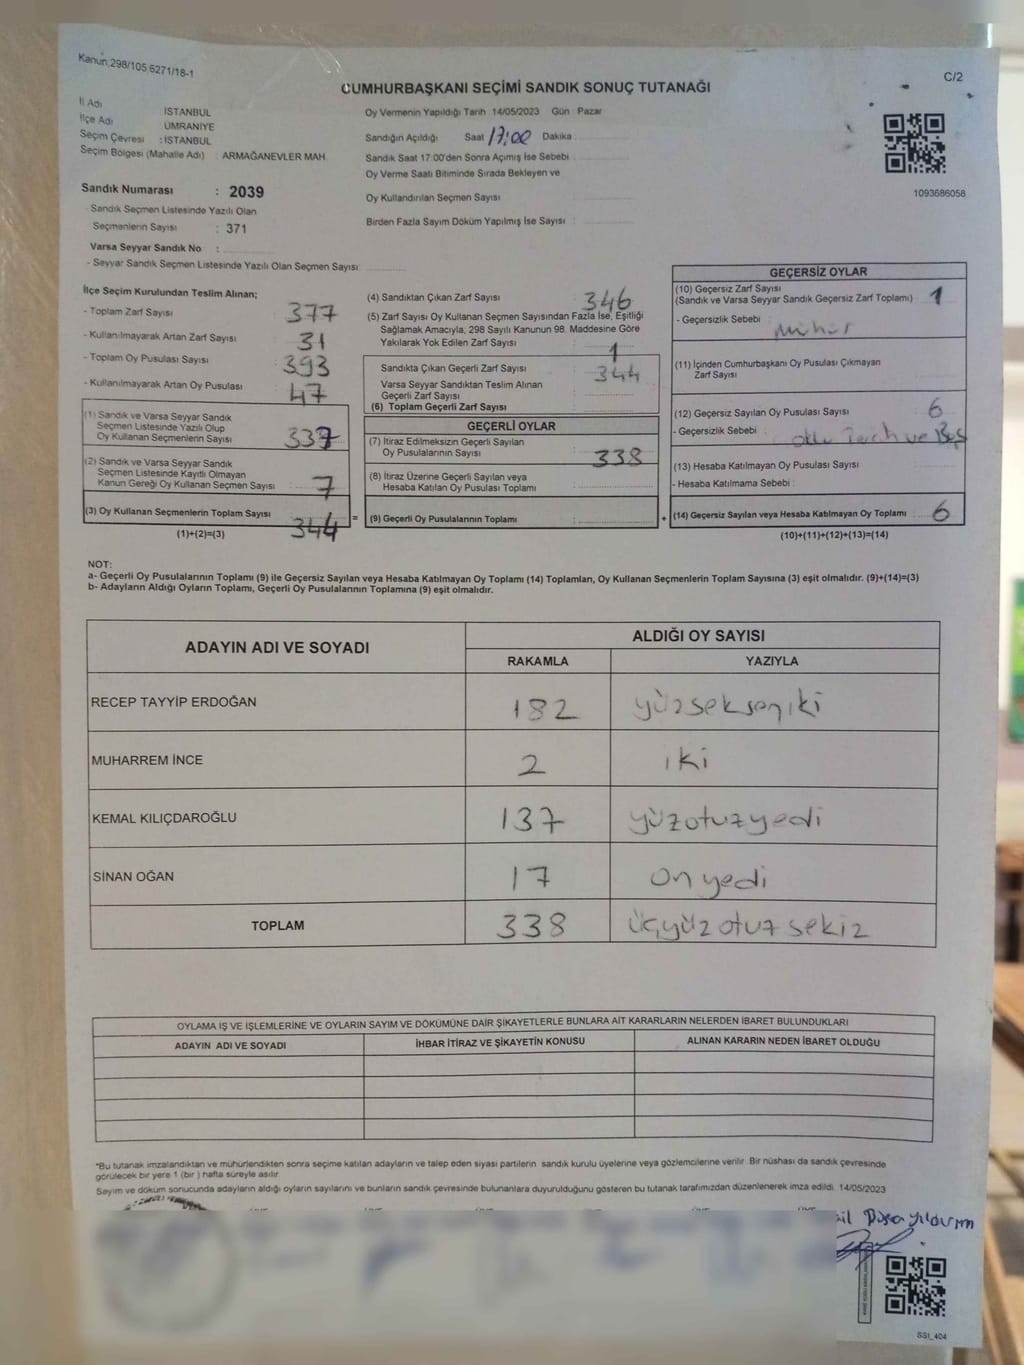 Kanun,298/105,6271/18-1
C/2
CUMHURBAŞKANI SEÇİMİ SANDIK SONUÇ TUTANAĞI
İl Adı İSTANBUL
İlçe Adı ÜMRANİYE
Seçim Çevresi : İSTANBUL
Seçim Bölgesi (Mahalle Adı) : ARMAĞANEVLER MAH.
Oy Vermenin Yapıldığı Tarih 14/05/2023 Gün : Pazar
Sandığın Açıldığı Saat 17:00 Dakika
Sandık Saat 17:00'den Sonra Açımış İse Sebebi
Oy Verme Saati Bitiminde Sırada Bekleyen ve
Oy Kullandırılan Seçmen Sayısı
Birden Fazla Sayım Döküm Yapılmış İse Sayısı
1093686058
Sandık Numarası : 2039
- Sandık Seçmen Listesinde Yazılı Olan
Seçmenlerin Sayısı : 371
Varsa Seyyar Sandık No :
- Seyyar Sandık Seçmen Listesinde Yazılı Olan Seçmen Sayısı:
İlçe Seçim Kurulundan Teslim Alınan;
- Toplam Zarf Sayısı 377
- Kullanılmayarak Artan Zarf Sayısı 31
- Toplam Oy Pusulası Sayısı 393
- Kullanılmayarak Artan Oy Pusulası 47
(1) Sandık ve Varsa Seyyar Sandık
Seçmen Listesinde Yazılı Olup
Oy Kullanan Seçmenlerin Sayısı 337
(2) Sandık ve Varsa Seyyar Sandık
Seçmen Listesinde Kayıtlı Olmayan
Kanun Gereği Oy Kullanan Seçmen Sayısı 7
(3) Oy Kullanan Seçmenlerin Toplam Sayısı 344
(1)+(2)=(3)
(4) Sandıktan Çıkan Zarf Sayısı 346
(5) Zarf Sayısı Oy Kullanan Seçmen Sayısından Fazla İse, Eşitliği
Sağlamak Amacıyla, 298 Sayılı Kanunun 98. Maddesine Göre
Yakılarak Yok Edilen Zarf Sayısı 1
Sandıkta Çıkan Geçerli Zarf Sayısı 344
Varsa Seyyar Sandıktan Teslim Alınan
Geçerli Zarf Sayısı
(6) Toplam Geçerli Zarf Sayısı
GEÇERLİ OYLAR
(7) İtiraz Edilmeksizin Geçerli Sayılan
Oy Pusulalarının Sayısı 338
(8) İtiraz Üzerine Geçerli Sayılan veya
Hesaba Katılan Oy Pusulası Toplamı
= (9) Geçerli Oy Pusulalarının Toplamı
GEÇERSİZ OYLAR
(10) Geçersiz Zarf Sayısı
(Sandık ve Varsa Seyyar Sandık Geçersiz Zarf Toplamı) 1
- Geçersizlik Sebebi : Mühür
(11) İçinden Cumhurbaşkanı Oy Pusulası Çıkmayan
Zarf Sayısı
(12) Geçersiz Sayılan Oy Pusulası Sayısı 6
- Geçersizlik Sebebi : ve Boş
(13) Hesaba Katılmayan Oy Pusulası Sayısı
- Hesaba Katılmama Sebebi :
+ (14) Geçersiz Sayılan veya Hesaba Katılmayan Oy Toplamı 6
(10)+(11)+(12)+(13)=(14)
NOT:
a- Geçerli Oy Pusulalarının Toplamı (9) ile Geçersiz Sayılan veya Hesaba Katılmayan Oy Toplamı (14) Toplamları, Oy Kullanan Seçmenlerin Toplam Sayısına (3) eşit olmalıdır. (9)+(14)=(3)
b- Adayların Aldığı Oyların Toplamı, Geçerli Oy Pusulalarının Toplamına (9) eşit olmalıdır.
ADAYIN ADI VE SOYADI
ALDIĞI OY SAYISI
RAKAMLA YAZIYLA
RECEP TAYYİP ERDOĞAN 182 yüzsekseniki
MUHARREM İNCE 2 iki
KEMAL KILIÇDAROĞLU 137 yüzotuzyedi
SİNAN OĞAN 17 onyedi
TOPLAM 338 üçyüzotuzsekiz
OYLAMA İŞ VE İŞLEMLERİNE VE OYLARIN SAYIM VE DÖKÜMÜNE DAİR ŞİKAYETLERLE BUNLARA AİT KARARLARIN NELERDEN İBARET BULUNDUKLARI
ADAYIN ADI VE SOYADI İHBAR İTİRAZ VE ŞİKAYETİN KONUSU ALINAN KARARIN NEDEN İBARET OLDUĞU
*Bu tutanak imzalandıktan ve mühürlendikten sonra seçime katılan adayların ve talep eden siyasi partilerin sandık kurulu üyelerine veya gözlemcilerine verilir. Bir nüshası da sandık çevresinde
görülecek bir yere 1 (bir ) hafta süreyle asılır.
Sayım ve döküm sonucunda adayların aldığı oyların sayılarını ve bunların sandık çevresinde bulunanlara duyurulduğunu gösteren bu tutanak tarafımızdan düzenlenerek imza edildi. 14/05/2023
SSI_404